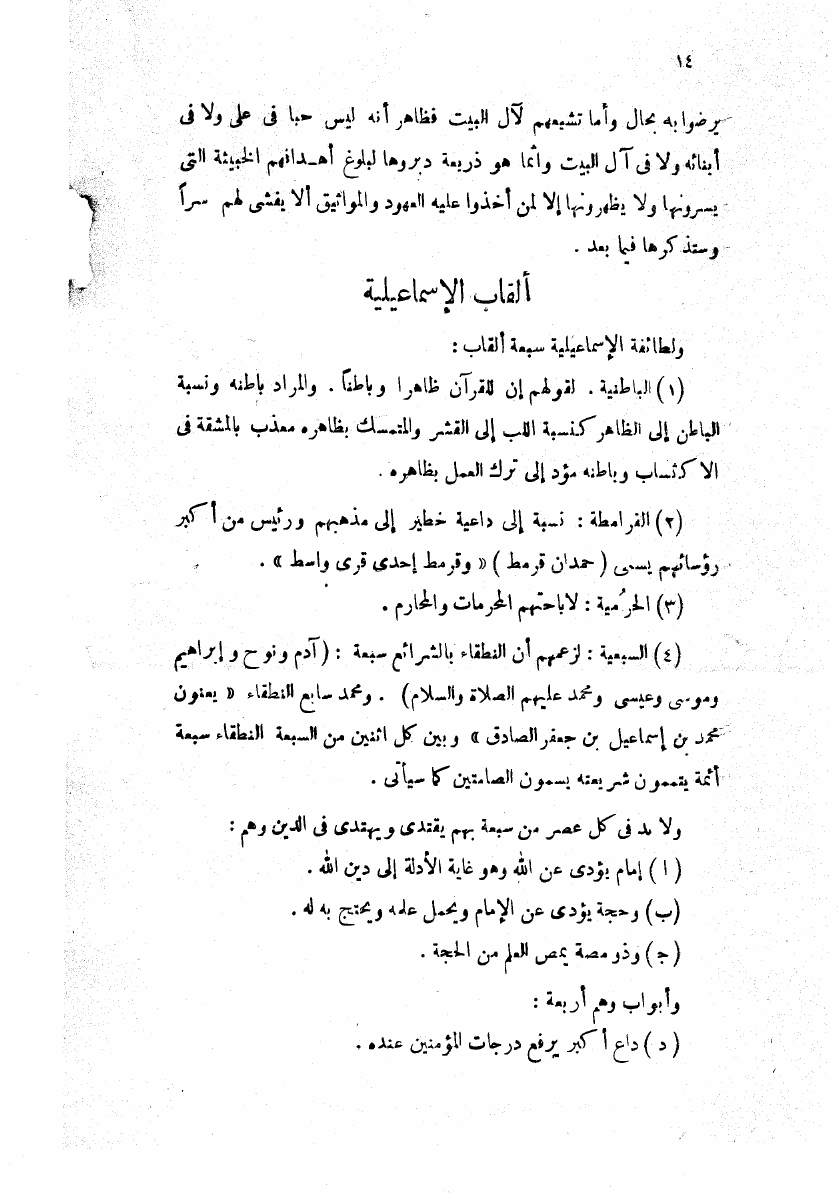 ١٤
يرضوا به بحال وأما تشيعهم لآل البيت فظاهر أنه ليس حبا فى على ولا فى
أبنائه ولا فى آل البيت وانما هو ذريعة دبروها لبلوغ أهدافهم الخبيثة التى
يسرونها ولا يظهرونها إلا لمن أخذوا عليه العهود والمواثيق ألا يفشى لهم سراً
وستذكرها فيما بعد .
ألقاب الإسماعيلية
ولطائفة الإسماعيلية سبعة ألقاب :
(١) الباطنية . لقولهم إن للقرآن ظاهرا وباطناً . والمراد باطنه ونسبة
الباطن إلى الظاهر كنسبة اللب إلى القشر والمتمسك بظاهره معذب بالمشقة فى
الاكتساب وباطنه مؤد إلى ترك العمل بظاهره .
(٢) القرامطة : نسبة إلى داعية خطير إلى مذهبهم ورئيس من أكبر
رؤسائهم يسمى ( حمدان قرمط ) « وقرمط إحدى قرى واسط » .
(٣) الخرُمية : لاباحتهم المحرمات والمحارم .
(٤) السبعية : لزعمهم أن النطقاء بالشرائع سبعة : (آدم ونوح وإبراهيم
وموسى وعيسى ومحمد عليهم الصلاة والسلام) . ومحمد سابع النطقاء « يعنون
محمد بن إسماعيل بن جعفر الصادق » وبين كل اثنين من السبعة النطقاء سبعة
أئمة يتممون شريعته يسمون الصامتين كما سيأتى .
ولا بد فى كل عصر من سبعة بهم يقتدى ويهتدى فى الدين وهم :
( ا ) إمام يؤدى عن الله وهو غاية الأدلة إلى دين الله .
(ب) وحجة يؤدى عن الإمام ويحمل علمه ويحتج به له .
(ج) وذو مصة يمص العلم من الحجة .
وأبواب وهم أربعة :
( د ) داع أكبر يرفع درجات المؤمنين عنده .